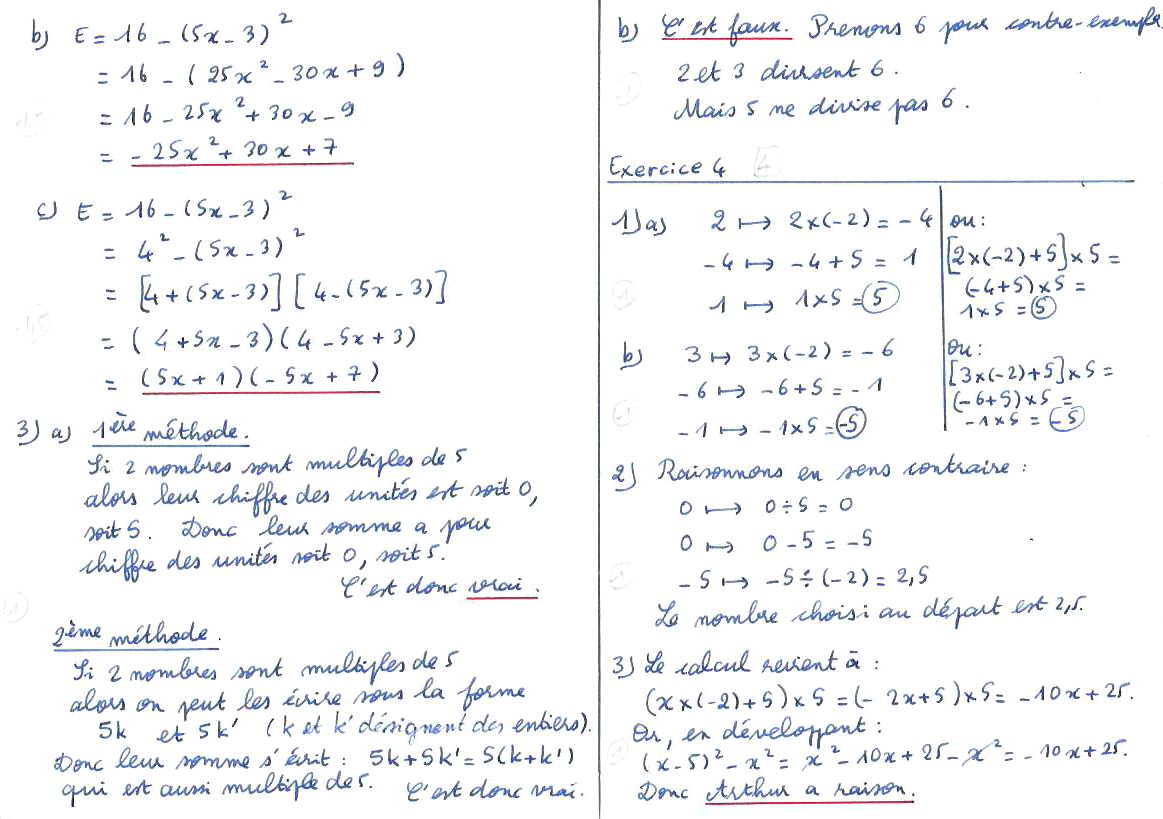 b) E = 16 - (5x - 3)²
= 16 - (25x² - 30x + 9)
= 16 - 25x² + 30x - 9
= - 25x² + 30x + 7
c) E = 16 - (5x - 3)²
= 4² - (5x - 3)²
= [4 + (5x - 3)] [4 - (5x - 3)]
= (4 + 5x - 3)(4 - 5x + 3)
= (5x + 1)(- 5x + 7)
3) a) 1ère méthode.
Si 2 nombres sont multiples de 5
alors leur chiffre des unités est soit 0,
soit 5. Donc leur somme a pour
chiffre des unités soit 0, soit 5.
C'est donc vrai.
2ème méthode.
Si 2 nombres sont multiples de 5
alors on peut les écrire sous la forme
5k et 5k' (k et k' désignent des entiers).
Donc leur somme s'écrit : 5k + 5k' = 5(k + k')
qui est aussi multiple de 5. C'est donc vrai.
b) C'est faux. Prenons 6 pour contre-exemple
2 et 3 divisent 6.
Mais 5 ne divise pas 6.
Exercice 4
1) a) 2 ↦ 2×(-2) = - 4
- 4 ↦ - 4 + 5 = 1
1 ↦ 1×5 = 5
ou :
[2×(-2)+5]×5 =
(-4+5)×5 =
1×5 = 5
b) 3 ↦ 3×(-2) = - 6
- 6 ↦ - 6 + 5 = - 1
- 1 ↦ - 1×5 = -5
ou :
[3×(-2)+5]×5 =
(-6+5)×5 =
- 1×5 = -5
2) Raisonnons en sens contraire :
0 ↦ 0 ÷ 5 = 0
0 ↦ 0 - 5 = -5
- 5 ↦ -5 ÷ (-2) = 2,5
Le nombre choisi au départ est 2,5.
3) Le calcul revient à :
(x×(-2)+5)×5 = (- 2x+5)×5 = - 10x + 25.
Or, en développant :
(x - 5)² - x² = x² - 10x + 25 - x² = - 10x + 25.
Donc Arthur a raison.